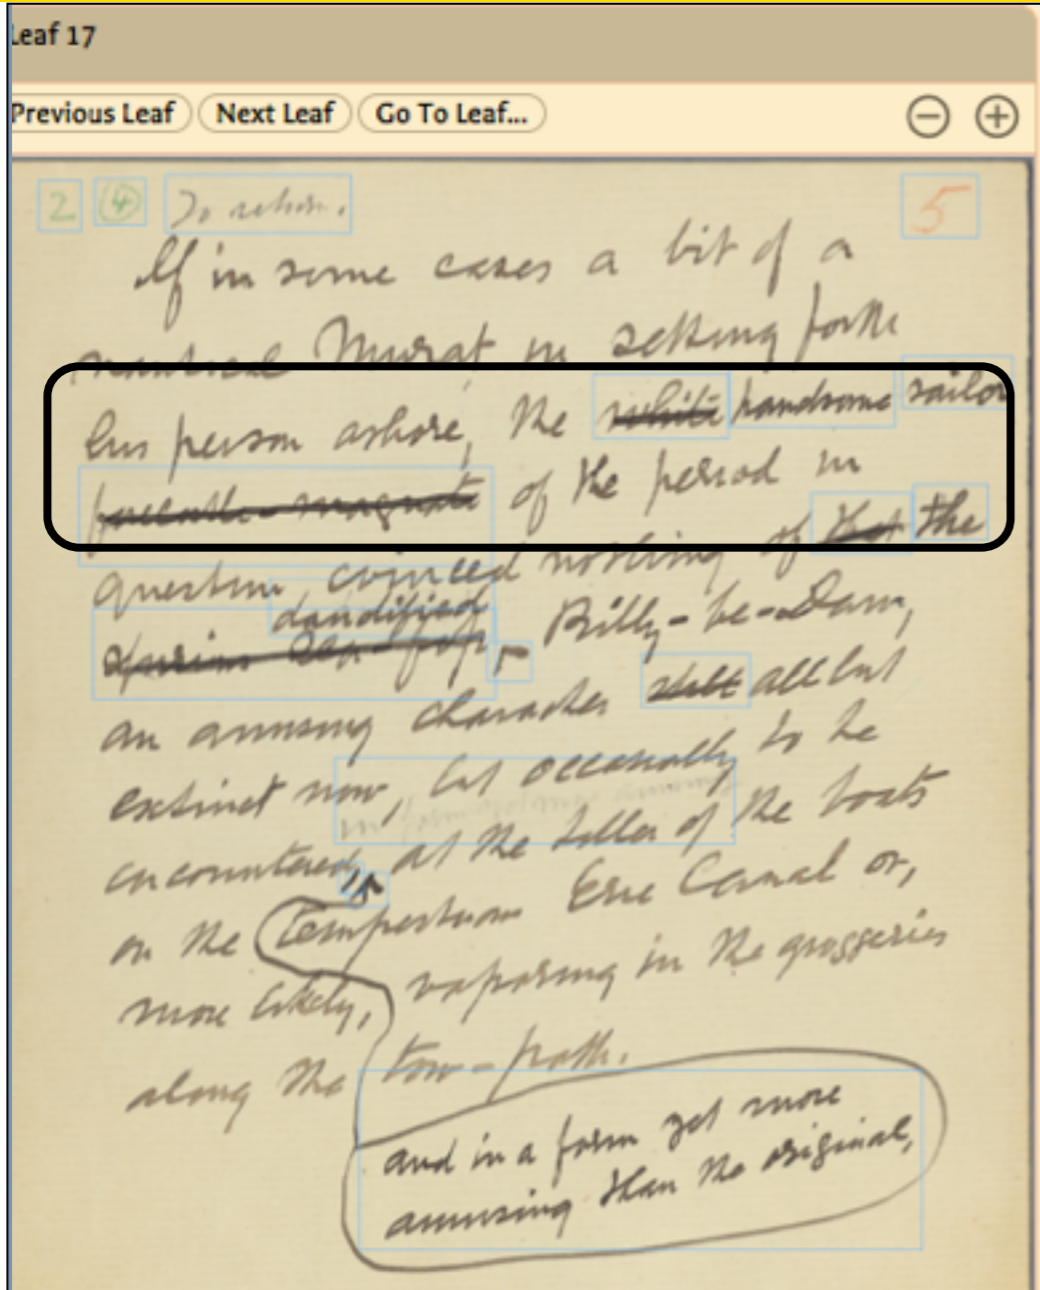 Leaf 17
Previous Leaf Next Leaf Go To Leaf...
2 4 To return. 5
If in some cases a bit of a
nautical Murat in setting forth
his person ashore, the white handsome sailor
forecastle-magnate of the period in
question evinced nothing of that the
dandified
spurious sea-fop, Billy-be-Dam,
an amusing character still all but
extinct now, but occasionally to be
in form yet more amusing
encountered, at the tiller of the boats
on the tempestuous Erie Canal or,
more likely, vaporing in the groggeries
along the tow-path.
and in a form yet more
amusing than the original,